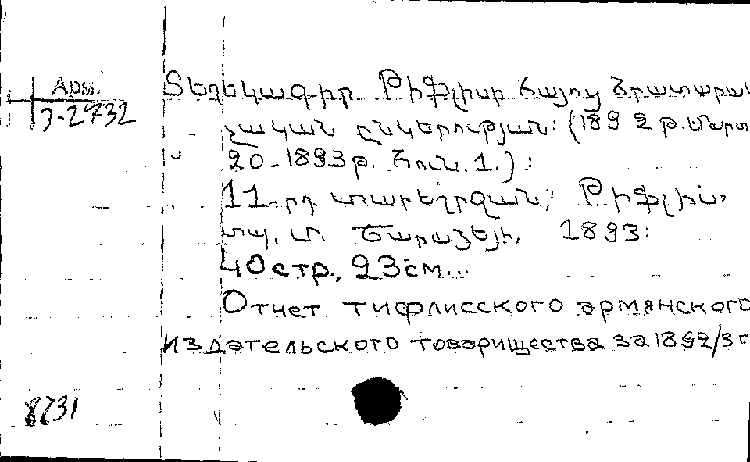 Арм.
3-2732
Տեղեկագիր Թիֆլիսի Հայոց Հրատարակ
չական ընկերության: (1892 թ. Մարտ
20-1893 թ. Հուն. 1.):
11-րդ տարեշրջան, Թիֆլիս,
տպ. Մ. Շարաձեի, 1893:
40 стр., 23 см...
Отчет тифлисского армянского
издательского товарищества за 1892/3 г
8731